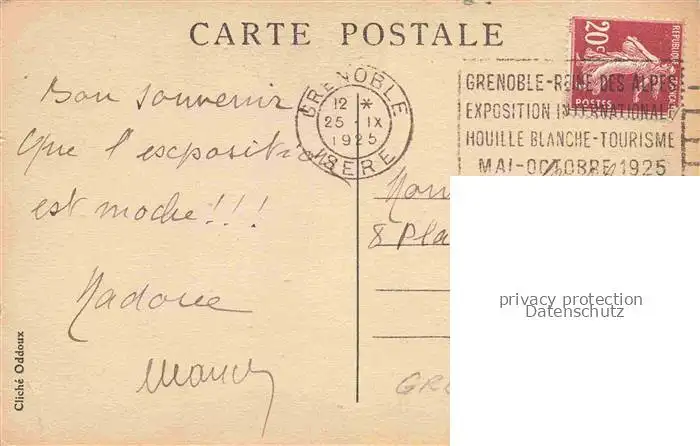 CARTE POSTALE
RÉPUBLIQUE FRANÇAISE
20c
POSTES
GRENOBLE
12 *
25 IX
1925
ISERE
GRENOBLE-REINE DES ALPES
EXPOSITION INTERNATIONALE
HOUILLE BLANCHE-TOURISME
MAI-OCTOBRE 1925
Bon souvenir
Que l'exposition
est moche!!!
8 Pla
privacy protection
Datenschutz
Cliché Oddoux